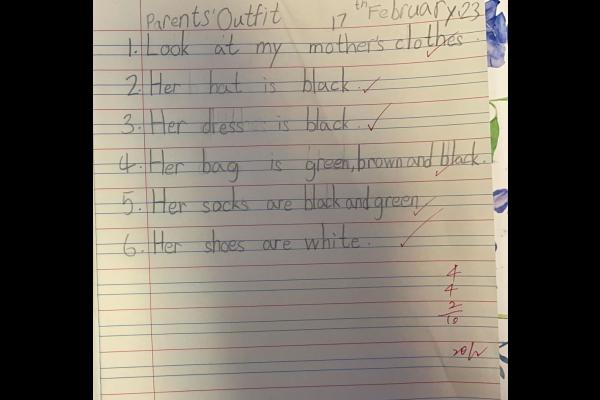 Parents' Outfit 17th February.23
1. Look at my mother's clothes.
2. Her hat is black.
3. Her dress is black.
4. Her bag is green, brown and black.
5. Her socks are black and green.
6. Her shoes are white.
4
4
2
10